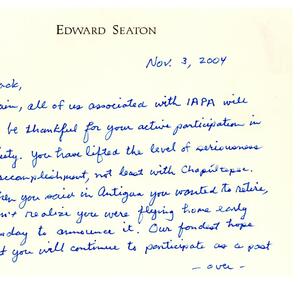 EDWARD SEATON
Nov. 3, 2004
ack,
ain, all of us associated with IAPA will
be thankful for your active participation in
iety. You have lifted the level of seriousness
accomplishment, not least with Chapultepec.
hen you said in Antigua you wanted to retire,
n't realize you were flying home early
sday to announce it. Our fondest hope
t you will continue to participate as a past
- over -